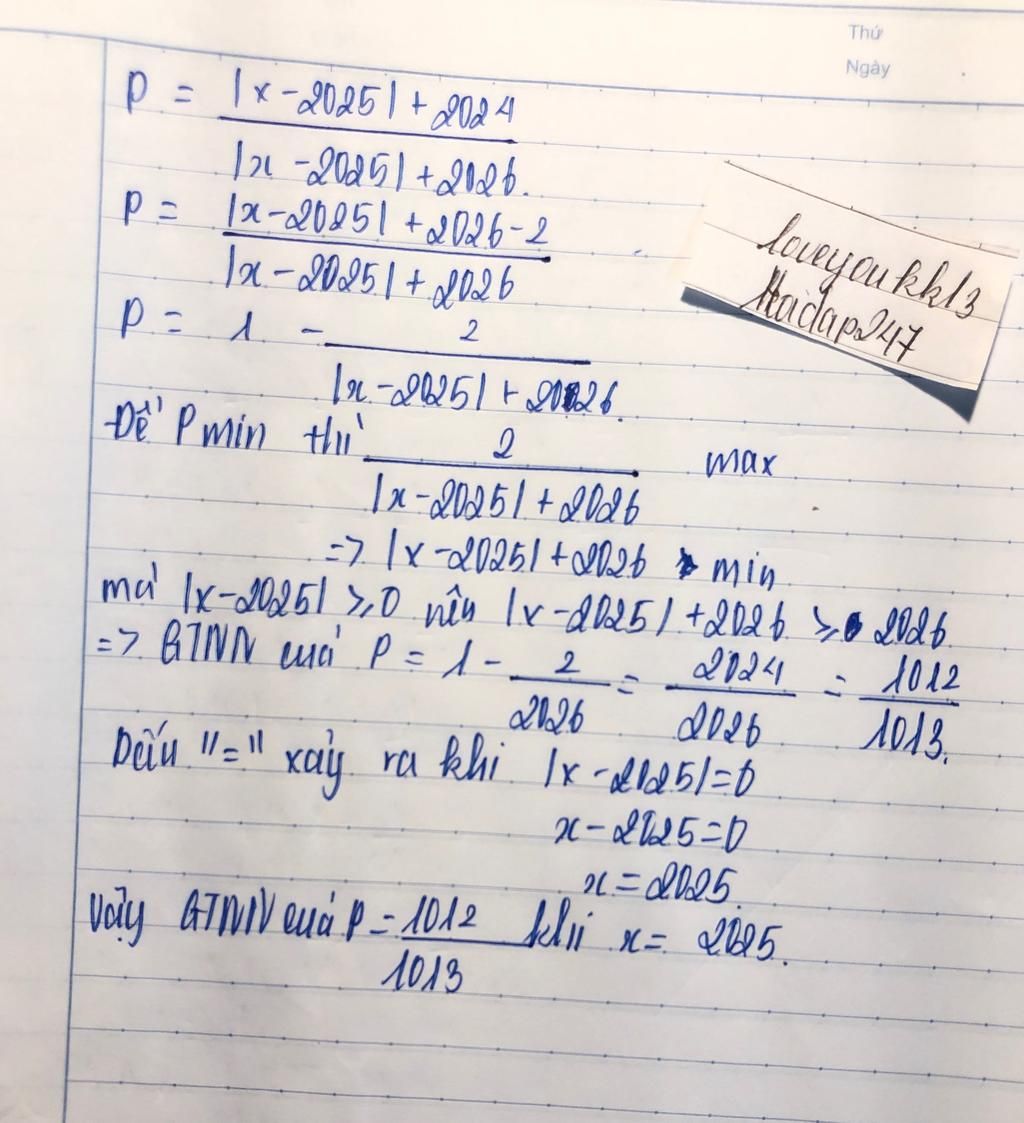 Thứ
Ngày
P = |x - 2025| + 2024
|x - 2025| + 2026.
P = |x - 2025| + 2026 - 2
|x - 2025| + 2026
P = 1 - 2
|x - 2025| + 2026.
loveyoukk13
Hadap247
Để P min thì 2 max
|x - 2025| + 2026
=> |x - 2025| + 2026 min
mà |x - 2025| ≥ 0 nên |x - 2025| + 2026 ≥ 2026
=> GTNN của P = 1 - 2/2026 = 2024/2026 = 1012/1013.
Dấu "=" xảy ra khi |x - 2025| = 0
x - 2025 = 0
x = 2025.
Vậy GTNN của P = 1012 khi x = 2025.
1013